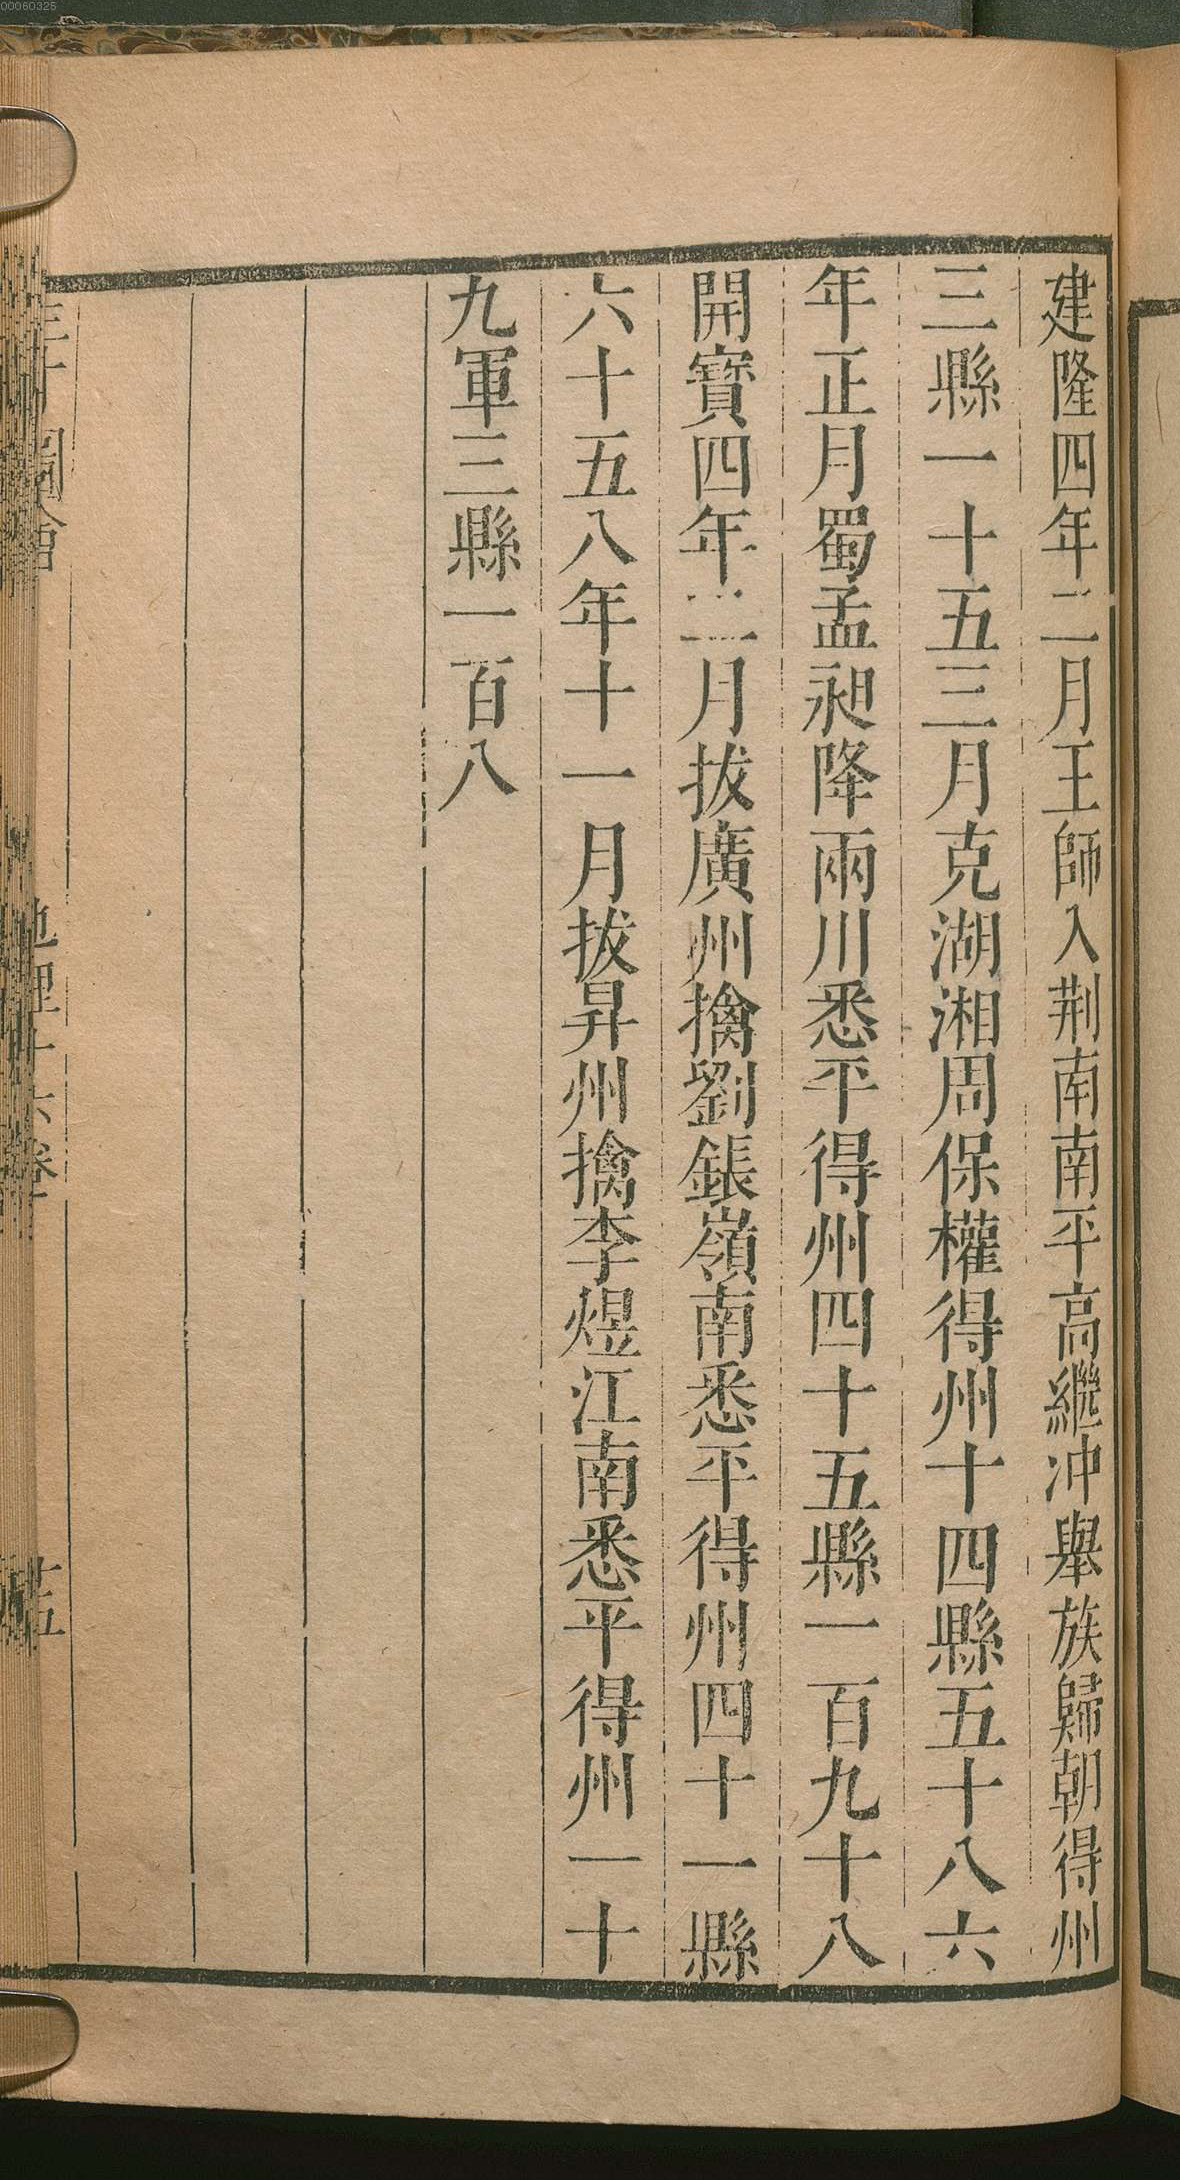 00060325
建隆四年二月王師入荆南南平高繼冲舉族歸朝得州
三縣一十五三月克湖湘周保權得州十四縣五十八六
年正月蜀孟昶降兩川悉平得州四十五縣一百九十八
開寶四年二月拔廣州擒劉鋹嶺南悉平得州四十一縣
六十五八年十一月拔昇州擒李煜江南悉平得州一十
九軍三縣一百八
地理十六卷